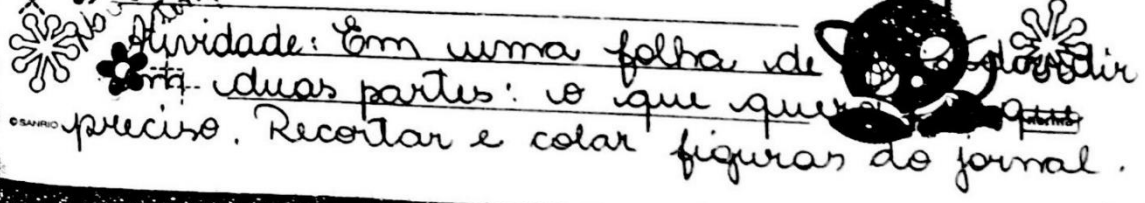 Atividade: Em uma folha de dividir
em duas partes: o que quero que
©SANRIO preciso. Recortar e colar figuras do jornal.